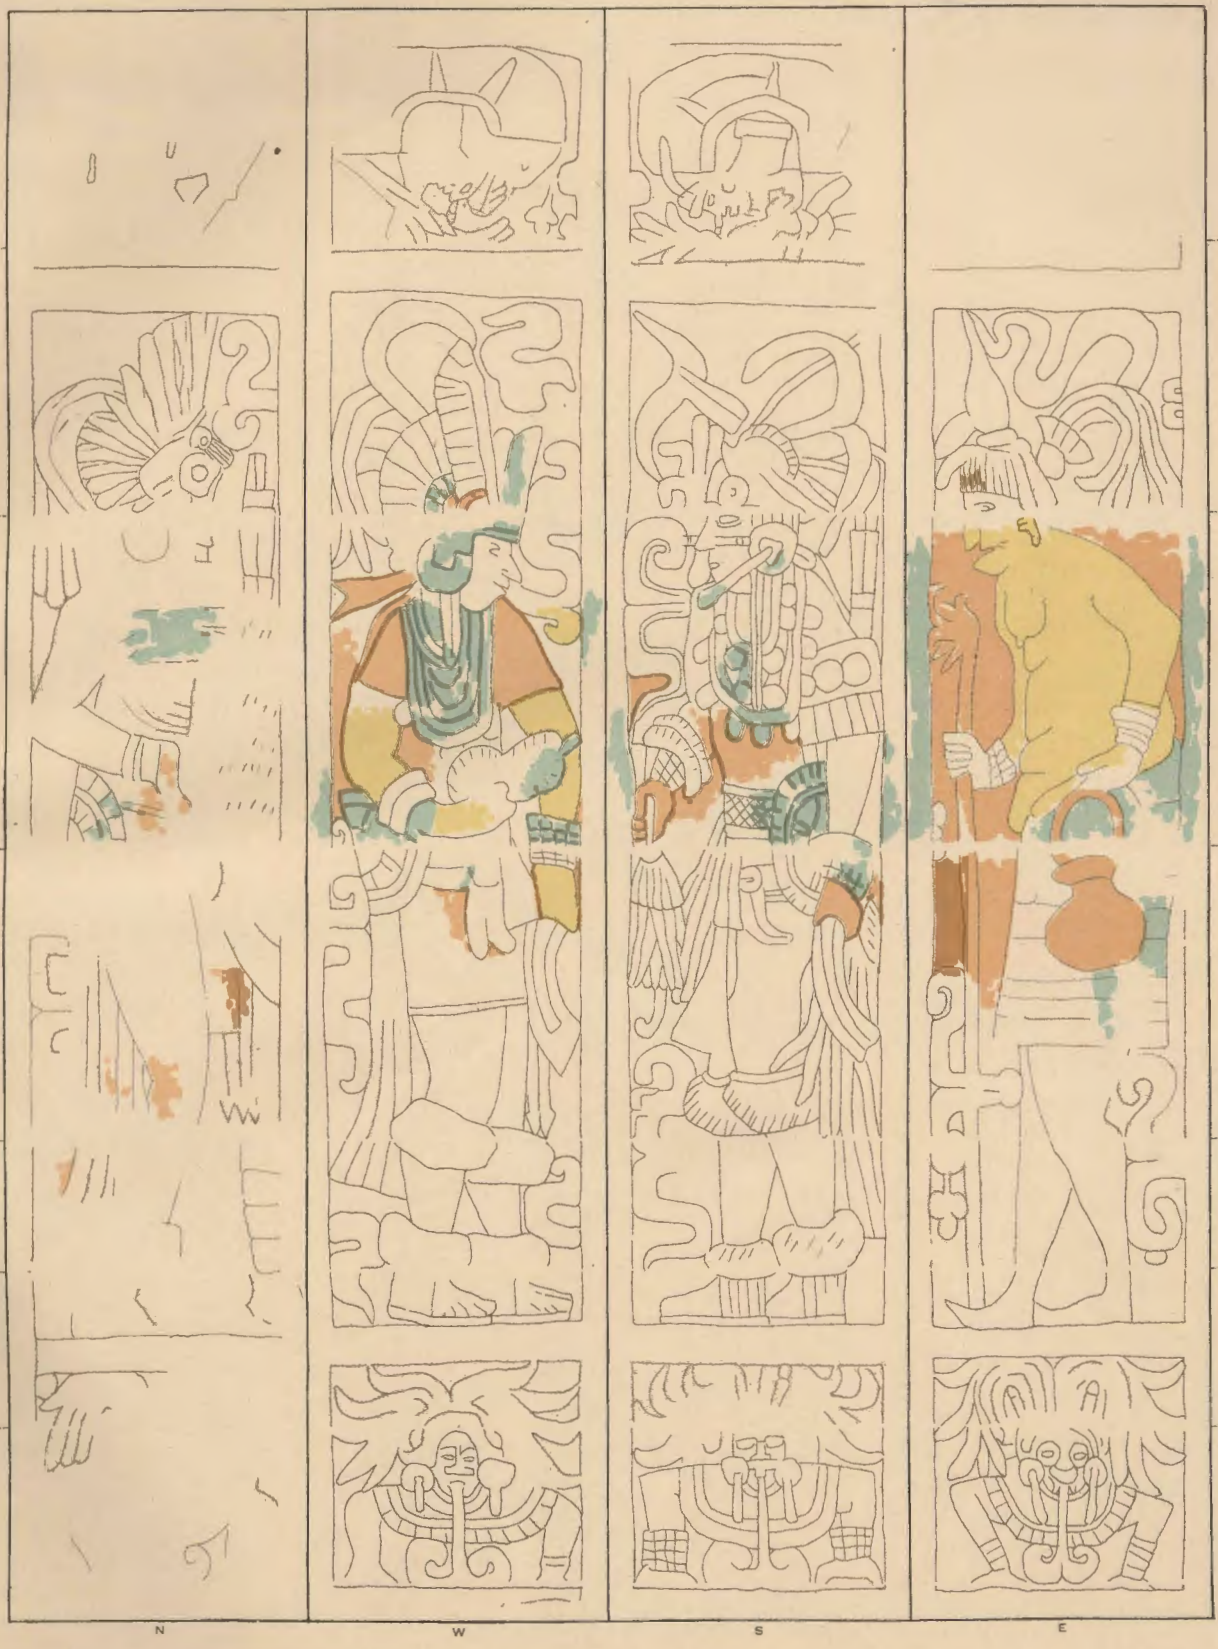 N W S E